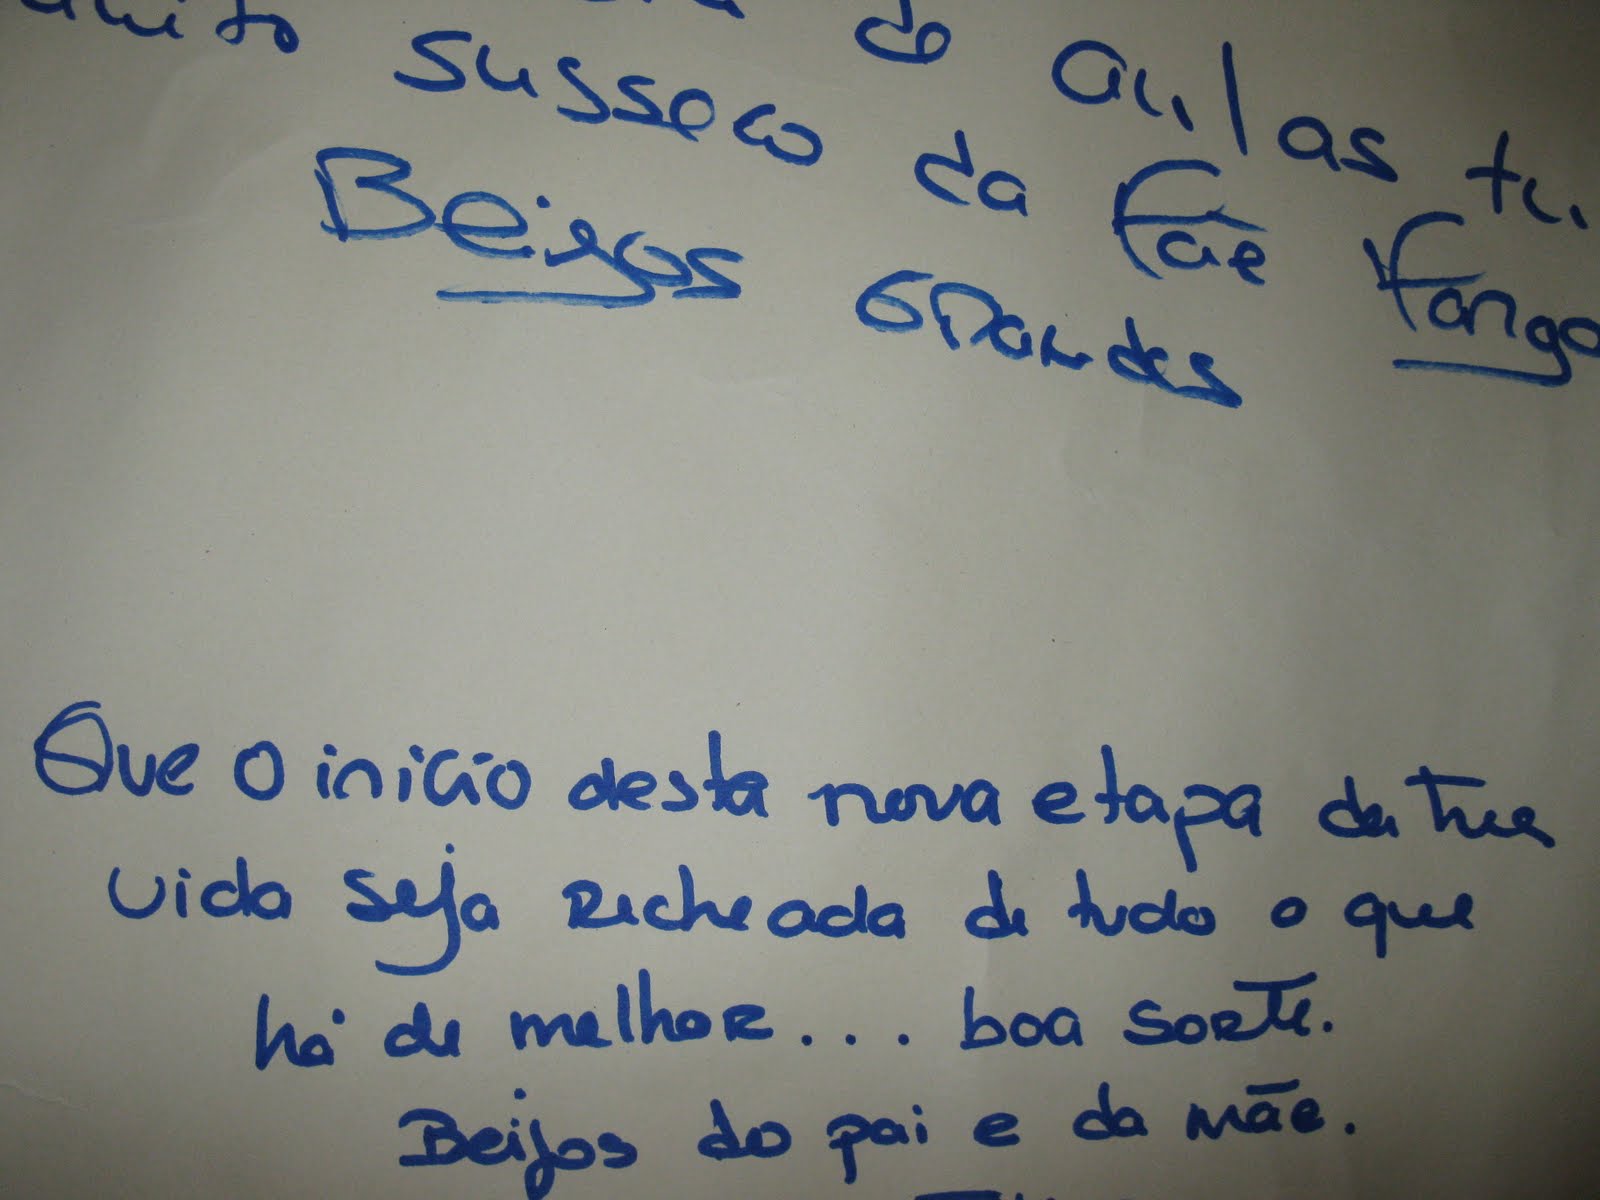 de aulas tu
susseco da Fáe Fango
Beijos GRandes
Que o inicio desta nova etapa da tua
vida seja Recheada de tudo o que
há de melhoR... boa soRte.
Beijos do pai e da mãe.